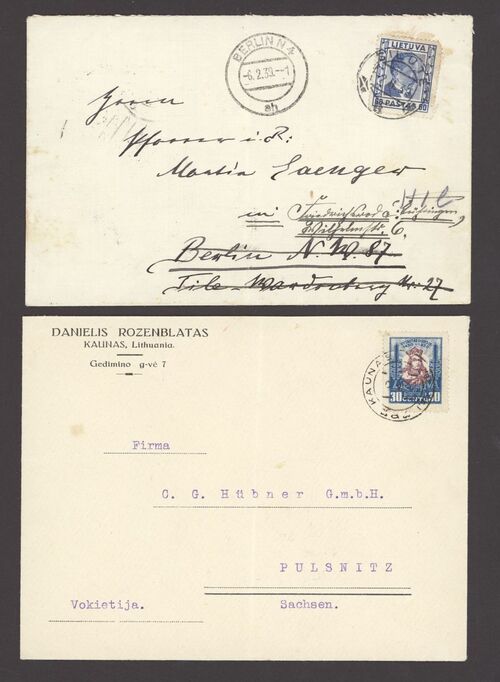 BERLIN N 4
-6.2.39.--1
ah
LIETUVA
60 PAŠTAS 60
Herrn
Pfarrer i. R.
Martin Saenger
in Friedrichroda i. Thüringen,
Wilhelmstr. 6,
Berlin N.W. 87
Tile-Wardenberg Str. 27
DANIELIS ROZENBLATAS
KAUNAS, Lithuania.
Gedimino g-vė 7
KAUNAS
30 CENTŲ 30
Firma
C. G. Hübner G.m.b.H.
PULSNITZ
Vokietija.
Sachsen.